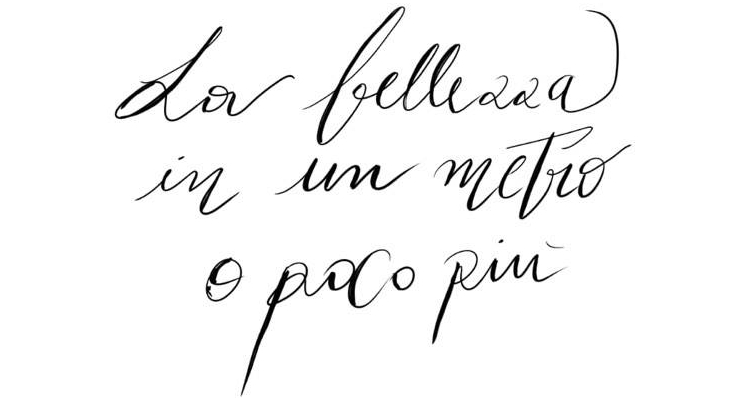 La bellezza
in un metro
o poco più